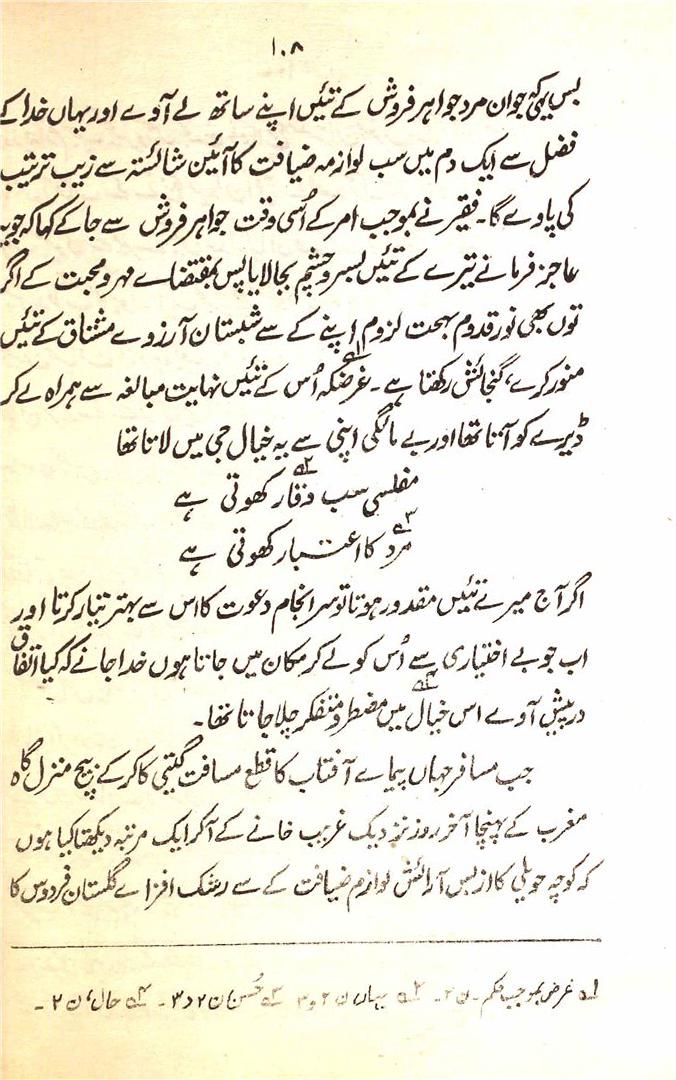 ۱۰۸
بس یہی کہ جوان مرد جواہر فروش کے تئیں اپنے ساتھ لے آوے اور یہاں خدا کے
فضل سے ایک دم میں سب لوازمہ ضیافت کا آئین شائستہ سے زیب ترتیب
کی پاوے گا۔ فقیر نے بموجب امر کے اُسی وقت جواہر فروش سے جا کے کہا کہ جو یہ
عاجز فرمانے تیرے کے تئیں بسر و چشم بجا لایا پس بمقتضاے مہر و محبت کے اگر
توں بھی نور قدوم بہجت لزوم اپنے کے سے شبستان آرزوے مشتاق کے تئیں
منور کرے، گنجائش رکھتا ہے۔ غرضکہ۱؎ اُس کے تئیں نہایت مبالغہ سے ہمراہ لے کر
ڈیرے کو آتا تھا اور بے مائگی اپنی سے یہ خیال جی میں لاتا تھا
مفلسی سب۲؎ وقار کھوتی ہے
مرد۳؎ کا اعتبار کھوتی ہے
اگر آج میرے تئیں مقدور ہوتا تو سر انجام دعوت کا اس سے بہتر تیار کرتا اور
اب جو بے اختیاری سے اُس کو لے کر مکان میں جاتا ہوں خدا جانے کہ کیا اتفاق
درپیش آوے اس خیال۴؎ میں مضطر و متفکر چلا جاتا تھا۔
جب مسافر جہاں پیماے آفتاب کا قطع مسافت گیتی کا کر کے بیچ منزل گاہ
مغرب کے پہنچا آخر روز نزدیک غریب خانے کے آکر ایک مرتبہ دیکھتا کیا ہوں
کہ کوچہ حویلی کا از بس آرائش لوازم ضیافت کے سے رشک افزاے گلستان فردوس کا
۱؎ غرض بموجب حکم۔ ن ۲۔ ۲؎ یہاں ن ۲ و ۳ ۳؎ حُسن ن ۲ و ۳۔ ۴؎ حال، ن ۲۔